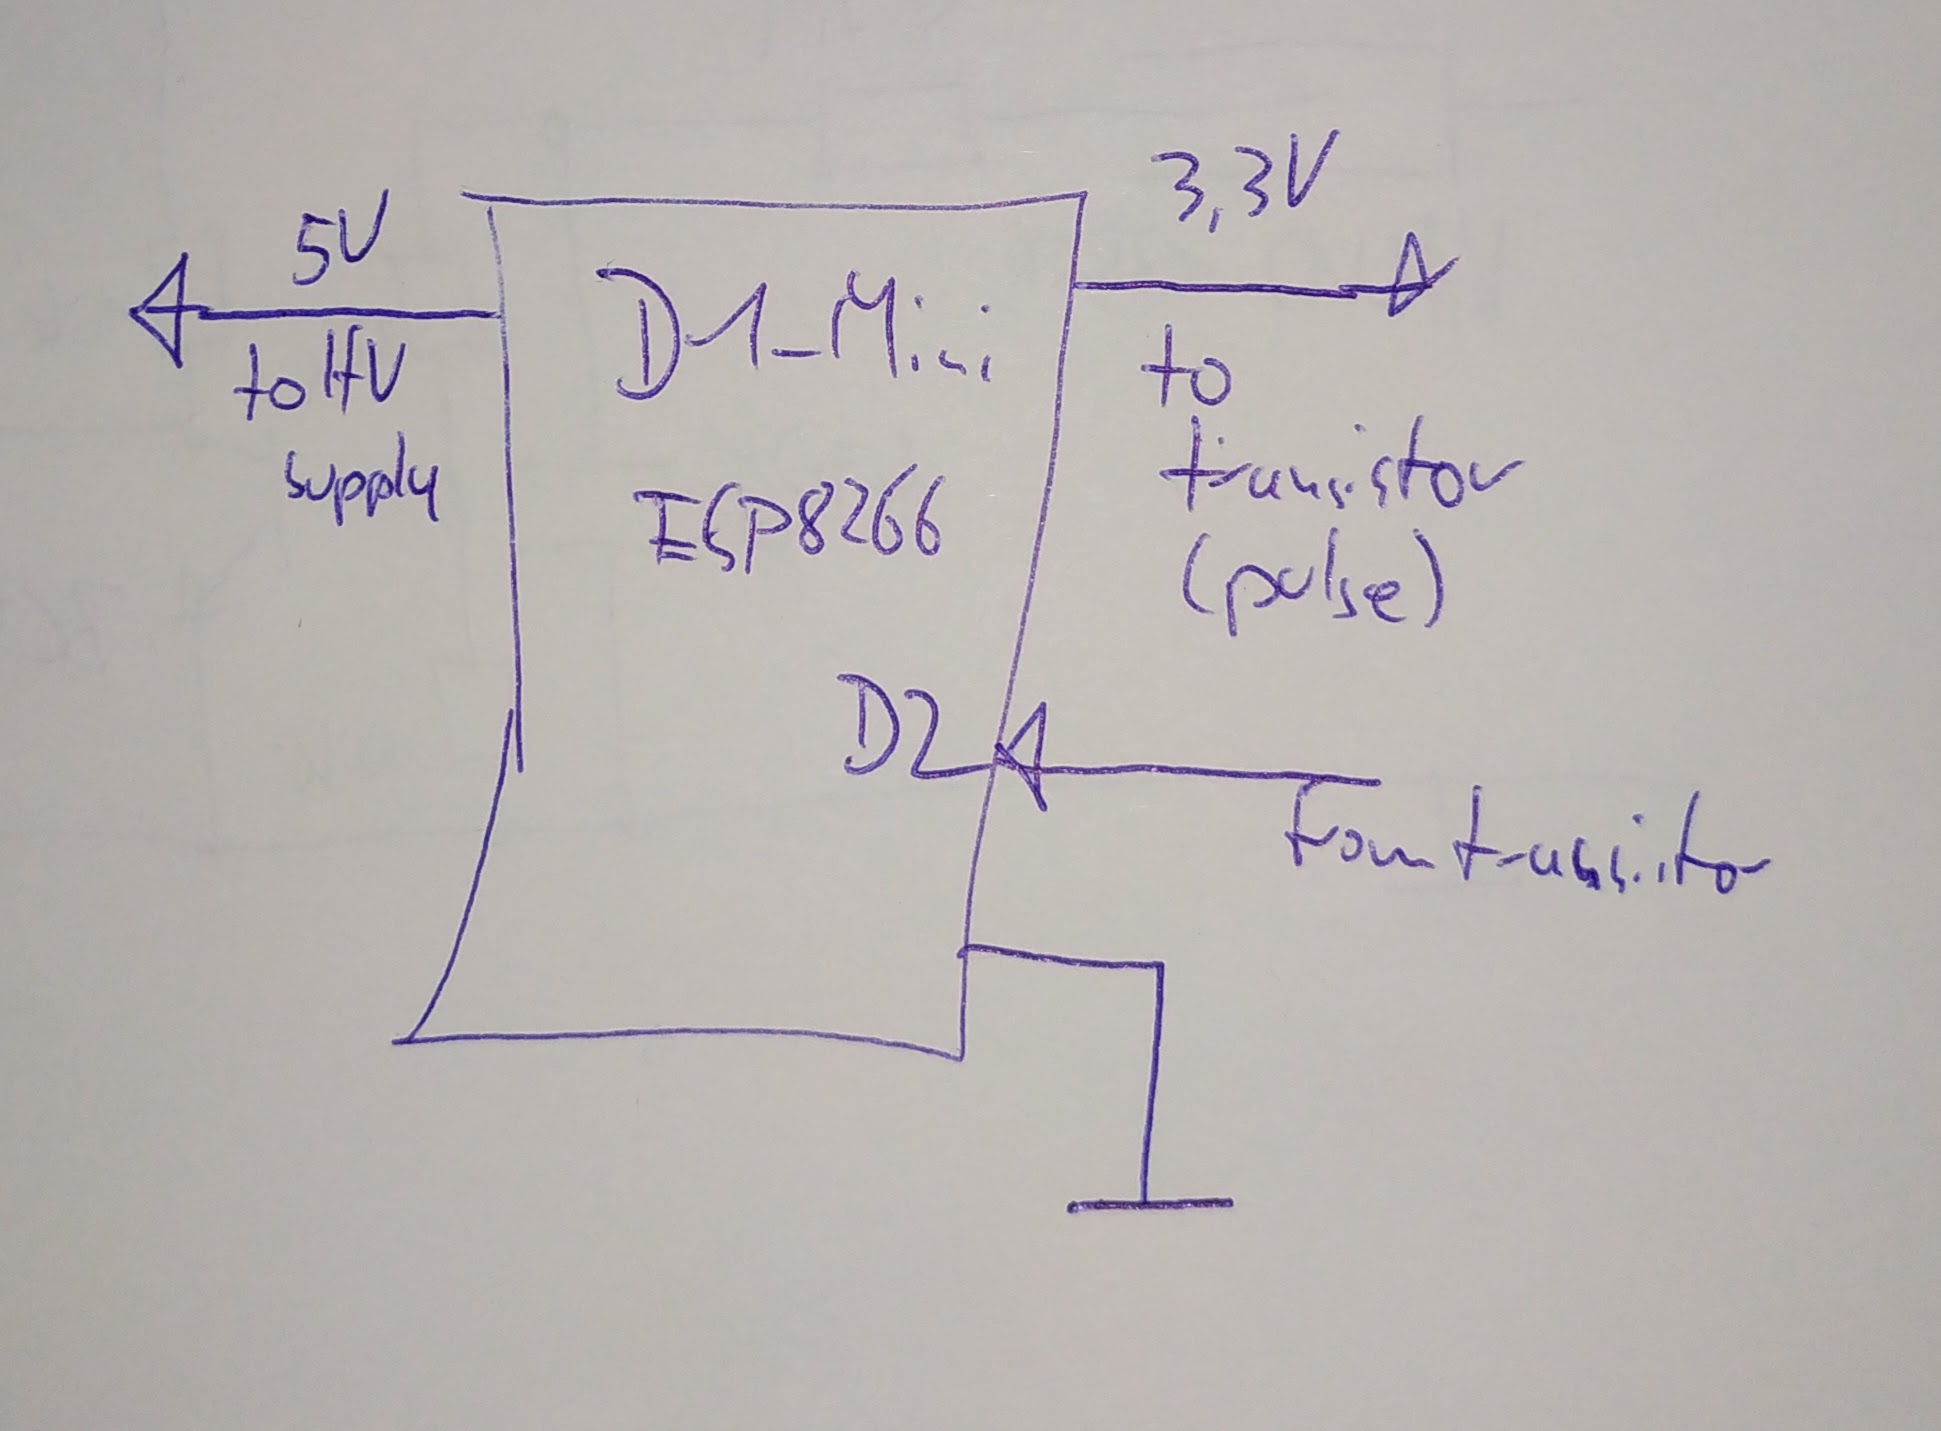 5V
to HV
supply
D1-Mini
ESP8266
D2
3,3V
to
transistor
(pulse)
from transistor